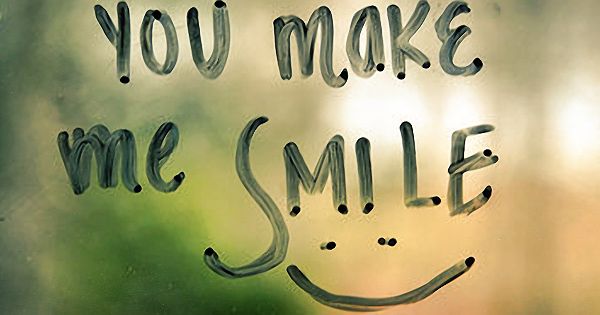 YOU MAKE
me SMILE